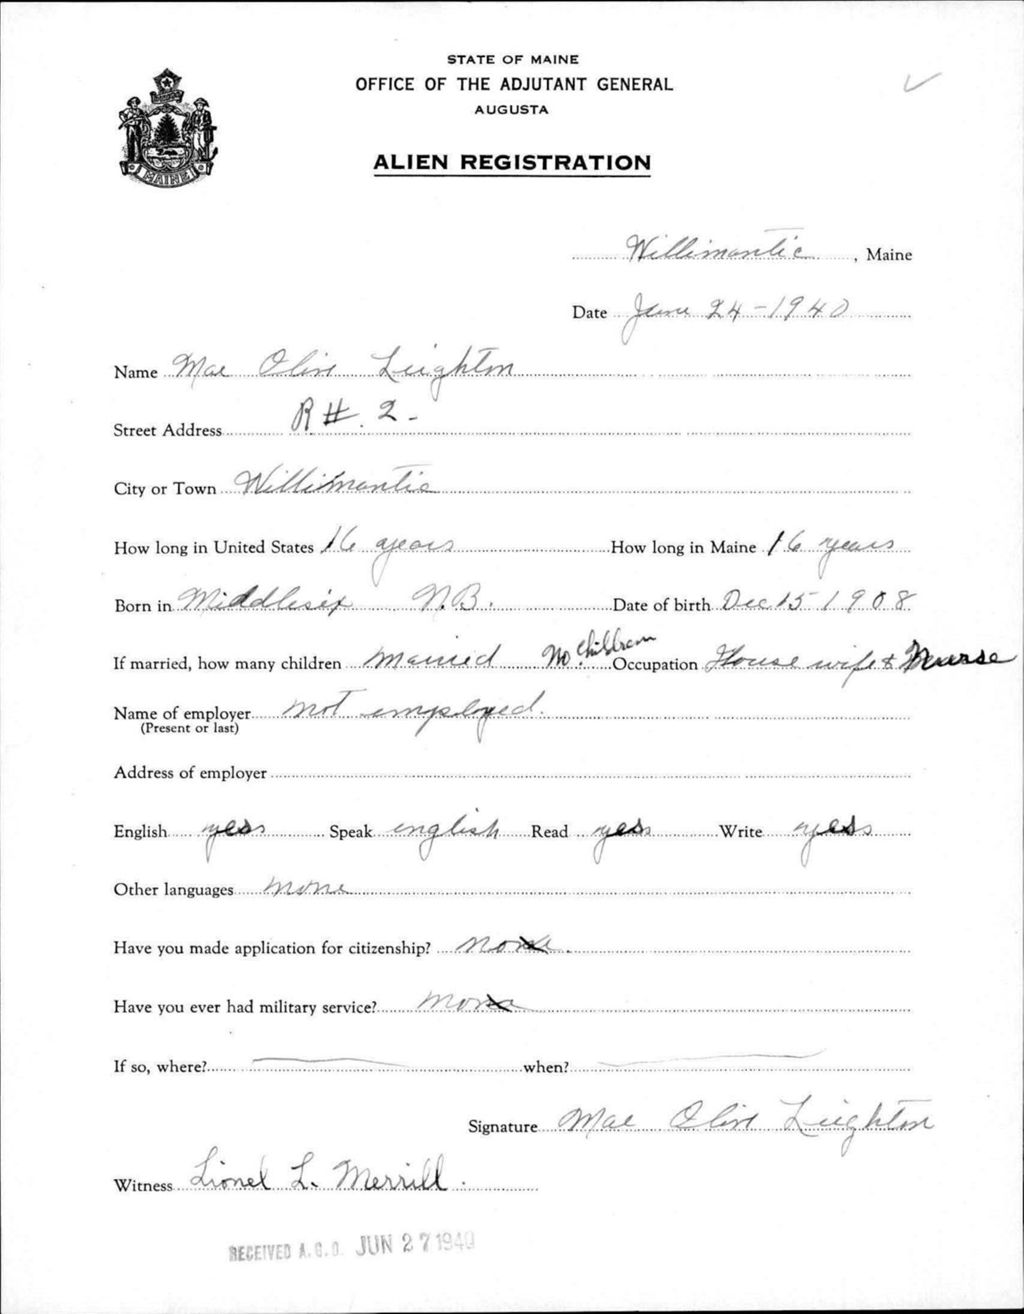 STATE OF MAINE
OFFICE OF THE ADJUTANT GENERAL
AUGUSTA
ALIEN REGISTRATION
MAINE
Willimantic, Maine
Date June 24-1940
Name Mae Olive Leighton
Street Address R#. 2-
City or Town Willimantic
How long in United States 16 years How long in Maine 16 years
Born in Middlesix N.B. Date of birth Dec 15 1908
If married, how many children Married No. Children Occupation House wife & Nurse
Name of employer not employed.
(Present or last)
Address of employer
English yes Speak english Read yes Write yes
Other languages none
Have you made application for citizenship? no
Have you ever had military service? no
If so, where? when?
Signature Mae Olive Leighton
Witness Lionel L. Merrill.
RECEIVED A.G.O. JUN 27 1940